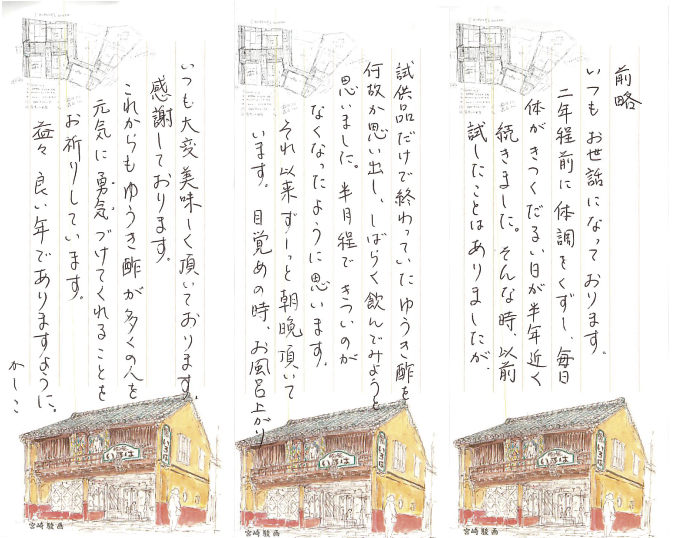 前略
いつもお世話になっております。
二年程前に体調をくずし、毎日
体がきつくだるい日が半年近く
続きました。そんな時、以前
試したことはありましたが、
いろは
宮崎駿画
試供品だけで終わっていたゆうき酢を
何故か思い出し、しばらく飲んでみようと
思いました。半月程できついのが
なくなったように思います。
それ以来ずーっと朝晩頂いて
います。目覚めの時、お風呂上がり
いろは
宮崎駿画
いつも大変美味しく頂いております。
感謝しております。
これからもゆうき酢が多くの人を
元気に勇気づけてくれることを
お祈りしています。
益々良い年でありますように。
かしこ
いろは
宮崎駿画